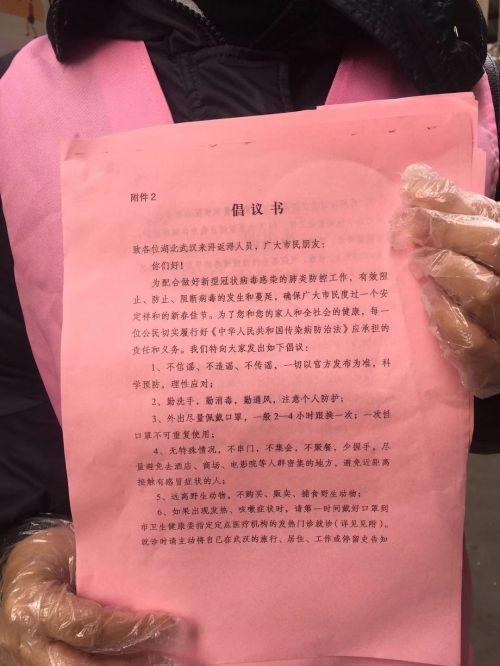 附件2
倡议书
致各位湖北武汉来浔返浔人员，广大市民朋友：
你们好！
为配合做好新型冠状病毒感染的肺炎防控工作，有效阻
止、防止、阻断病毒的发生和蔓延，确保广大市民度过一个安
定祥和的新春佳节。为了您和您的家人和全社会的健康，每一
位公民切实履行好《中华人民共和国传染病防治法》应承担的
责任和义务。我们特向大家发出如下倡议：
1、不信谣、不造谣、不传谣，一切以官方发布为准，科
学预防，理性应对；
2、勤洗手，勤消毒，勤通风，注意个人防护；
3、外出尽量佩戴口罩，一般2—4小时跟换一次；一次性
口罩不可重复使用；
4、无特殊情况，不串门，不集会，不聚餐，少握手，尽
量避免去酒店、商场、电影院等人群密集的地方，避免近距离
接触有感冒症状的人；
5、远离野生动物，不购买、贩卖、捕食野生动物；
6、如果出现发热、咳嗽症状时，请第一时间戴好口罩到
市卫生健康委指定定点医疗机构的发热门诊就诊（详见见附）。
就诊时请主动将自己在武汉的旅行、居住、工作或停留史告知